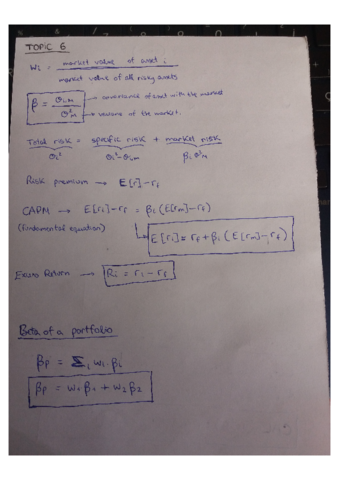 TOPIC 6
Wi = market value of asset i
market value of all risky assets
β = σi,m — covariance of asset with the market
σ²m → variance of the market.
Total risk = specific risk + market risk
σi² σi²-σi,m βiσ²m
Risk premium → E[r]-rf
CAPM → E[ri]-rf = βi (E[rm]-rf)
(fundamental equation)
E[ri] = rf + βi (E[rm]-rf)
Excess Return → Ri = ri - rf
Beta of a portfolio
βp = Σi wi βi
βp = w1 β1 + w2 β2